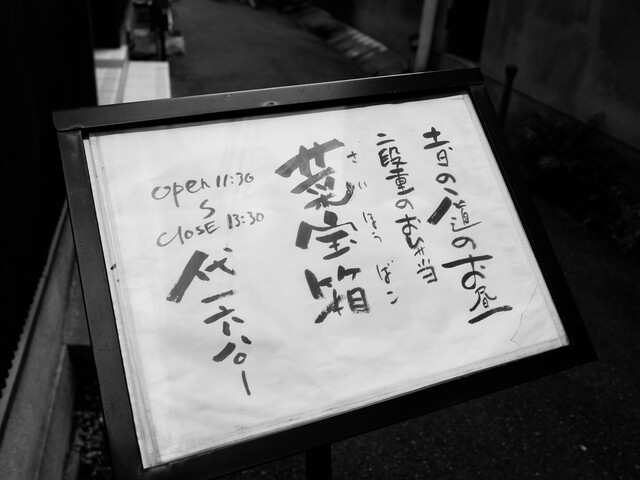 の道のお昼
二段重のお弁当
さい ほう ばこ
菜宝箱
OPEN 11:30
〜
CLOSE 13:30
代一六八〇ー